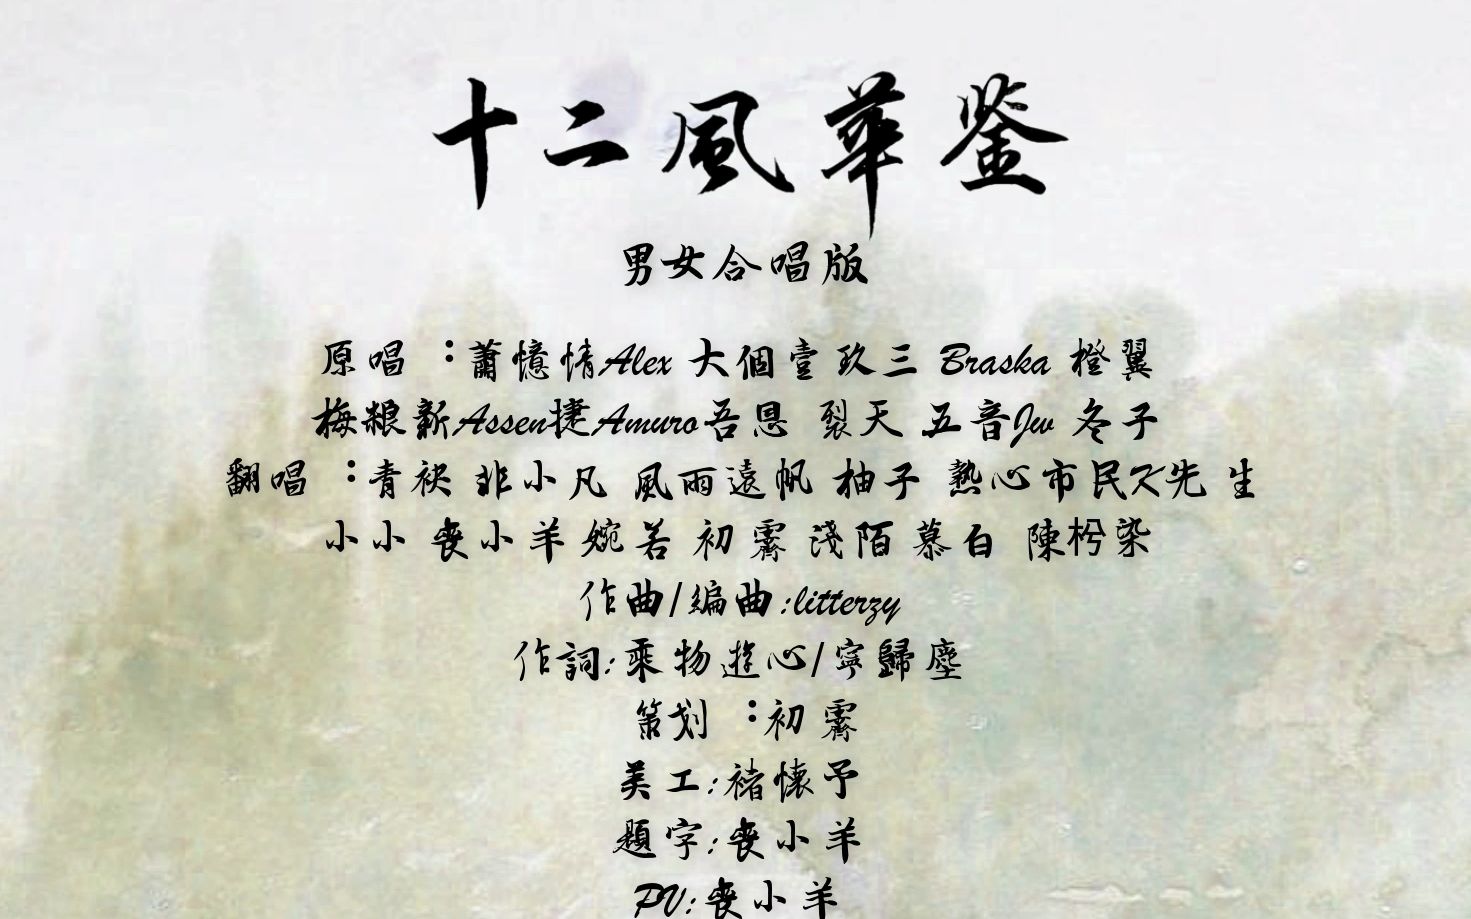 十二風華鉴
男女合唱版
原唱：蕭憶情Alex 大個壹玖三 Braska 橙翼
梅粮新Assen捷Amuro吾恩 裂天 五音Jw 冬子
翻唱：青袂 非小凡 風雨遠帆 柚子 熱心市民K先生
小小 喪小羊 婉若 初霽 淺陌 慕白 陳枍染
作曲/編曲:litterzy
作詞:乘物遊心/寧歸塵
策划：初霽
美工:褚懷予
題字:喪小羊
PV:喪小羊